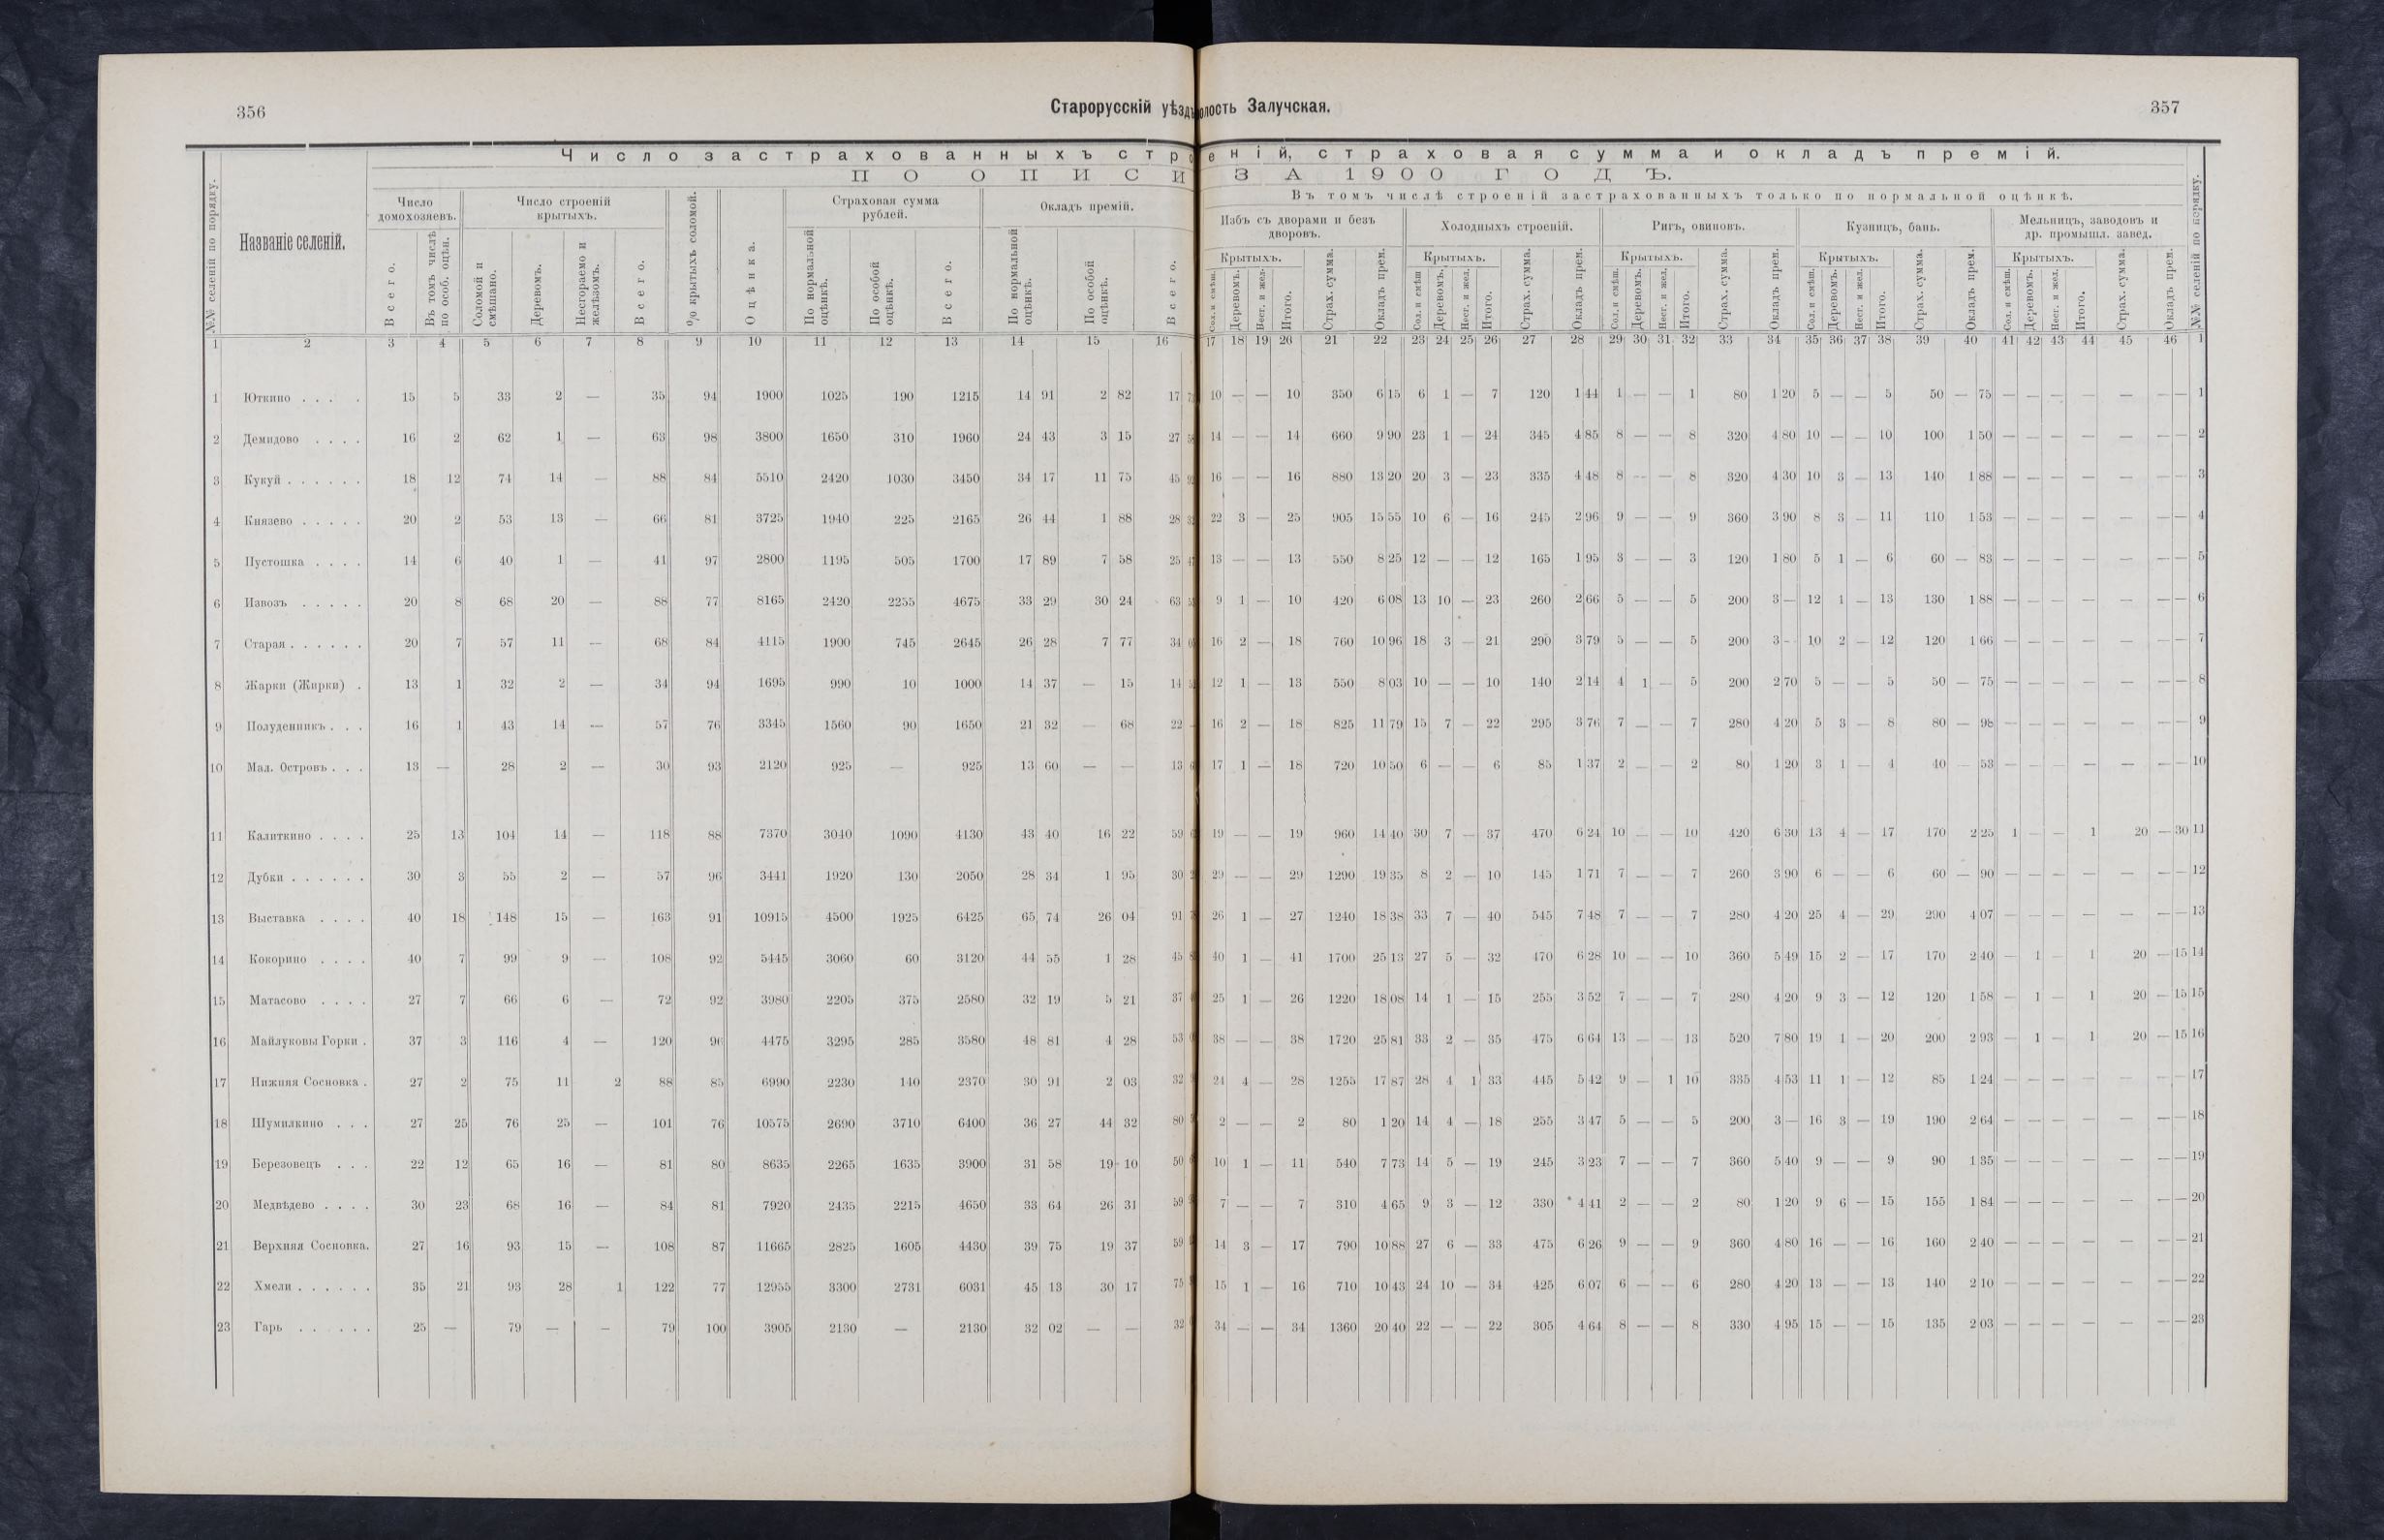 356
Старорусскій уѣздъ
олость Залучская.
357
Число застрахованныхъ строеній, страховая сумма и окладъ премій.
ПО ОПИСИ ЗА 1900 ГОДЪ.
Въ томъ числѣ строеній застрахованныхъ только по нормальной оцѣнкѣ.
№№ селеній по порядку.
Названіе селеній.
Число домохозяевъ.
Всего.
Въ томъ числѣ по особ. оцѣн.
Число строеній крытыхъ.
Соломой и смѣшано.
Деревомъ.
Несгораемо и желѣзомъ.
Всего.
% крытыхъ соломой.
Оцѣнка.
Страховая сумма рублей.
По нормальной оцѣнкѣ.
По особой оцѣнкѣ.
Всего.
Окладъ премій.
По нормальной оцѣнкѣ.
По особой оцѣнкѣ.
Всего.
Избъ съ дворами и безъ дворовъ.
Крытыхъ.
Сол. и смѣш.
Деревомъ.
Несг. и жел.
Итого.
Страх. сумма.
Окладъ прем.
Холодныхъ строеній.
Крытыхъ.
Сол. и смѣш
Деревомъ.
Несг. и жел.
Итого.
Страх. сумма.
Окладъ прем.
Ригъ, овиновъ.
Крытыхъ.
Сол. и смѣш.
Деревомъ.
Несг. и жел.
Итого.
Страх. сумма.
Окладъ прем.
Кузницъ, бань.
Крытыхъ.
Сол. и смѣш.
Деревомъ.
Несг. и жел.
Итого.
Страх. сумма.
Окладъ прем.
Мельницъ, заводовъ и др. промышл. завед.
Крытыхъ.
Сол. и смѣш.
Деревомъ.
Несг. и жел.
Итого.
Страх. сумма.
Окладъ прем.
№№ селеній по порядку.
1 2 3 4 5 6 7 8 9 10 11 12 13 14 15 16 17 18 19 20 21 22 23 24 25 26 27 28 29 30 31 32 33 34 35 36 37 38 39 40 41 42 43 44 45 46 1
1 Юткино . . . . 15 5 33 2 — 35 94 1900 1025 190 1215 14 91 2 82 17 10 — — 10 350 6 15 6 1 — 7 120 1 44 1 — — 1 80 1 20 5 — — 5 50 — 75 — — — — — — — 1
2 Демидово . . . . 16 2 62 1 — 63 98 3800 1650 310 1960 24 43 3 15 27 14 — — 14 660 9 90 23 1 — 24 345 4 85 8 — — 8 320 4 80 10 — — 10 100 1 50 — — — — — — — 2
3 Кукуй . . . . . . 18 12 74 14 — 88 84 5510 2420 1030 3450 34 17 11 75 45 16 — — 16 880 13 20 20 3 — 23 335 4 48 8 — — 8 320 4 30 10 3 — 13 140 1 88 — — — — — — — 3
4 Князево . . . . . 20 2 53 13 — 66 81 3725 1940 225 2165 26 44 1 88 28 22 3 — 25 905 15 55 10 6 — 16 245 2 96 9 — — 9 360 3 90 8 3 — 11 110 1 53 — — — — — — — 4
5 Пустошка . . . . 14 6 40 1 — 41 97 2800 1195 505 1700 17 89 7 58 25 13 — — 13 550 8 25 12 — — 12 165 1 95 3 — — 3 120 1 80 5 1 — 6 60 — 83 — — — — — — — 5
6 Извозъ . . . . . 20 8 68 20 — 88 77 8165 2420 2255 4675 33 29 30 24 63 9 1 — 10 420 6 08 13 10 — 23 260 2 66 5 — — 5 200 3 — 12 1 — 13 130 1 88 — — — — — — — 6
7 Старая . . . . . . 20 7 57 11 — 68 84 4115 1900 745 2645 26 28 7 77 34 16 2 — 18 760 10 96 18 3 — 21 290 3 79 5 — — 5 200 3 — 10 2 — 12 120 1 66 — — — — — — — 7
8 Жарки (Жирки) . 13 1 32 2 — 34 94 1695 990 10 1000 14 37 — 15 14 12 1 — 13 550 8 03 10 — — 10 140 2 14 4 1 — 5 200 2 70 5 — — 5 50 — 75 — — — — — — — 8
9 Полуденникъ . . . 16 1 43 14 — 57 76 3345 1560 90 1650 21 32 — 68 22 — 16 2 — 18 825 11 79 15 7 — 22 295 3 76 7 — — 7 280 4 20 5 3 — 8 80 — 98 — — — — — — — 9
10 Мал. Островъ . . . 13 — 28 2 — 30 93 2120 925 — 925 13 60 — — 13 17 1 — 18 720 10 50 6 — — 6 85 1 37 2 — — 2 80 1 20 3 1 — 4 40 — 53 — — — — — — — 10
11 Калиткино . . . . 25 13 104 14 — 118 88 7370 3040 1090 4130 43 40 16 22 59 19 — — 19 960 14 40 30 7 — 37 470 6 24 10 — — 10 420 6 30 13 4 — 17 170 2 25 1 — — 1 20 — 30 11
12 Дубки . . . . . . 30 3 55 2 — 57 96 3441 1920 130 2050 28 34 1 95 30 29 — — 29 1290 19 35 8 2 — 10 145 1 71 7 — — 7 260 3 90 6 — — 6 60 — 90 — — — — — — — 12
13 Выставка . . . . 40 18 148 15 — 163 91 10915 4500 1925 6425 65 74 26 04 91 26 1 — 27 1240 18 38 33 7 — 40 545 7 48 7 — — 7 280 4 20 25 4 — 29 290 4 07 — — — — — — — 13
14 Кокорино . . . . 40 7 99 9 — 108 92 5445 3060 60 3120 44 55 1 28 45 40 1 — 41 1700 25 13 27 5 — 32 470 6 28 10 — — 10 360 5 49 15 2 — 17 170 2 40 — 1 — 1 20 — 15 14
15 Матасово . . . . 27 7 66 6 — 72 92 3980 2205 375 2580 32 19 5 21 37 25 1 — 26 1220 18 08 14 1 — 15 255 3 52 7 — — 7 280 4 20 9 3 — 12 120 1 58 — 1 — 1 20 — 15 15
16 Майлуковы Горки . 37 3 116 4 — 120 96 4475 3295 285 3580 48 81 4 28 53 38 — — 38 1720 25 81 33 2 — 35 475 6 64 13 — — 13 520 7 80 19 1 — 20 200 2 93 — 1 — 1 20 — 15 16
17 Нижняя Сосновка . 27 2 75 11 2 88 85 6990 2230 140 2370 30 91 2 03 32 24 4 — 28 1255 17 87 28 4 1 33 445 5 42 9 — 1 10 335 4 53 11 1 — 12 85 1 24 — — — — — — — 17
18 Шумилкино . . . 27 25 76 25 — 101 76 10575 2690 3710 6400 36 27 44 32 80 2 — — 2 80 1 20 14 4 — 18 255 3 47 5 — — 5 200 3 — 16 3 — 19 190 2 64 — — — — — — — 18
19 Березовецъ . . . 22 12 65 16 — 81 80 8635 2265 1635 3900 31 58 19 10 50 10 1 — 11 540 7 73 14 5 — 19 245 3 23 7 — — 7 360 5 40 9 — — 9 90 1 35 — — — — — — — 19
20 Медвѣдево . . . . 30 23 68 16 — 84 81 7920 2435 2215 4650 33 64 26 31 59 7 — — 7 310 4 65 9 3 — 12 330 4 41 2 — — 2 80 1 20 9 6 — 15 155 1 84 — — — — — — — 20
21 Верхняя Сосновка. 27 16 93 15 — 108 87 11665 2825 1605 4430 39 75 19 37 59 14 3 — 17 790 10 88 27 6 — 33 475 6 26 9 — — 9 360 4 80 16 — — 16 160 2 40 — — — — — — — 21
22 Хмели . . . . . . 35 21 93 28 1 122 77 12955 3300 2731 6031 45 13 30 17 75 15 1 — 16 710 10 43 24 10 — 34 425 6 07 6 — — 6 280 4 20 13 — — 13 140 2 10 — — — — — — — 22
23 Гарь . . . . . . 25 — 79 — — 79 100 3905 2130 — 2130 32 02 — — 32 34 — — 34 1360 20 40 22 — — 22 305 4 64 8 — — 8 330 4 95 15 — — 15 135 2 03 — — — — — — — 23